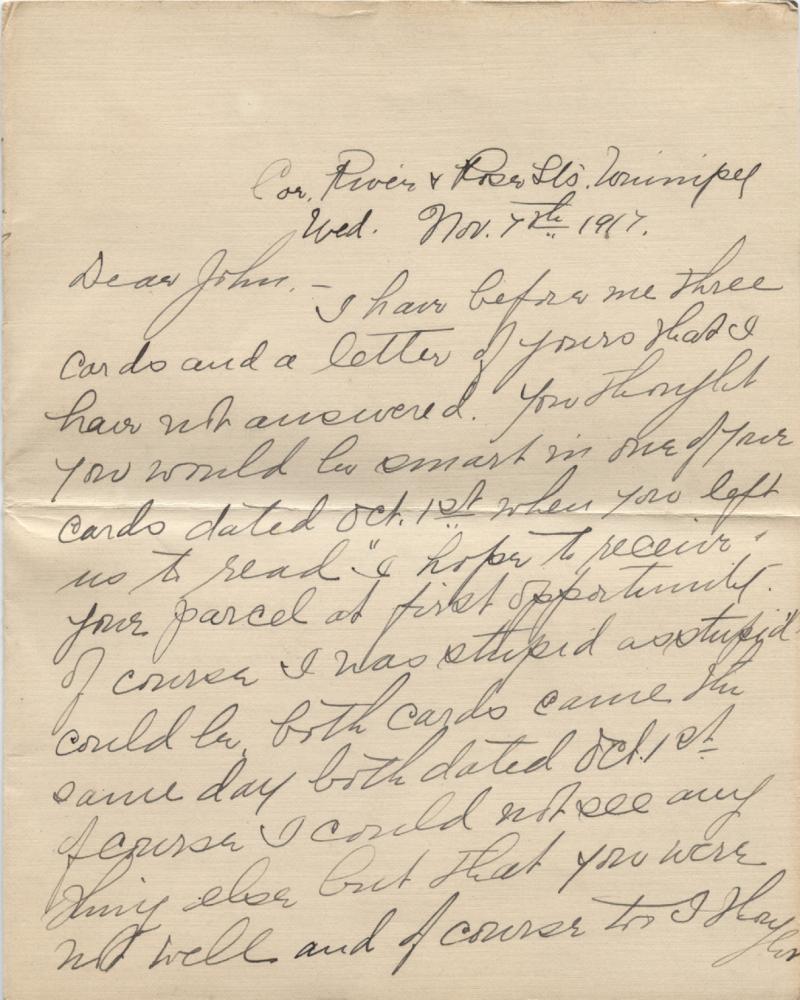 Cor. River & Rose Sts. Winnipeg
Wed. Nov. 7th 1917.
Dear John. –
I have before me three
cards and a letter of yours that I
have not answered. You thought
you would be smart in one of your
cards dated Oct. 1st when you left
us to read "I hope to receive"
your parcel at first opportunity.
Of course I was stupid as stupid
could be, both cards came the
same day both dated Oct. 1st
of course I could not see any
thing else but that you were
not well and of course too I thought